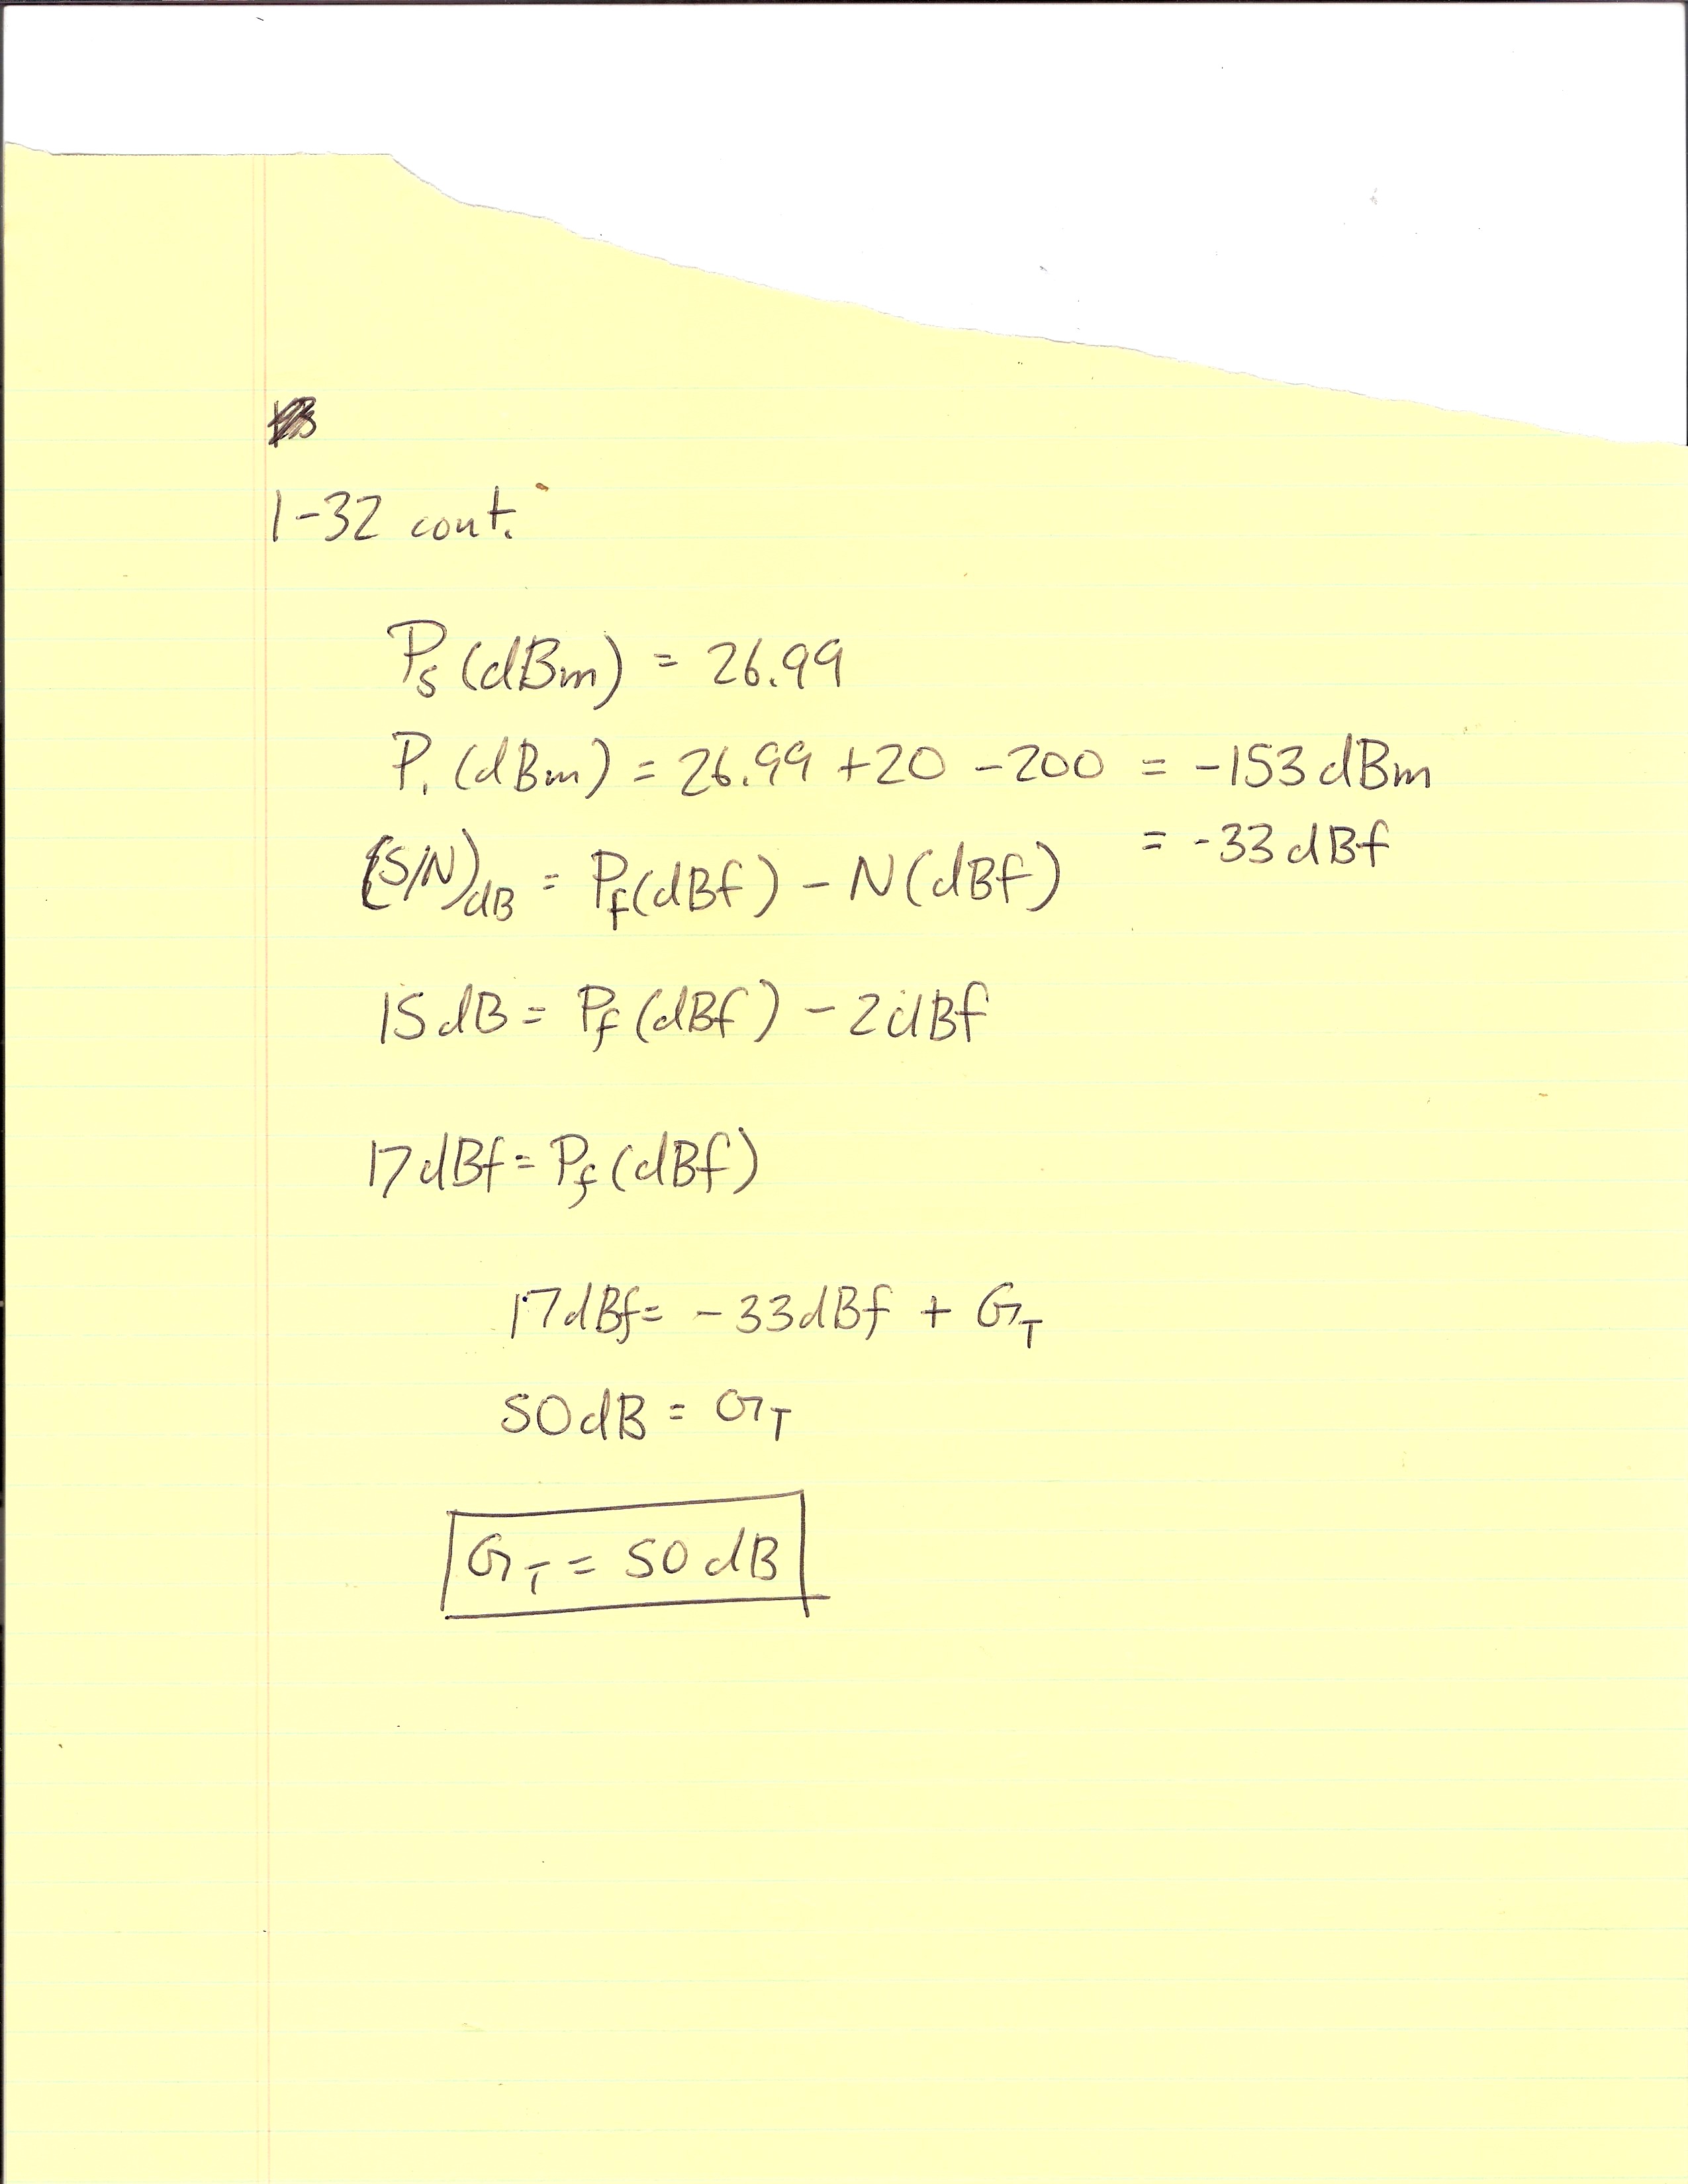 1-32 cont.
Ps (dBm) = 26.99
P1 (dBm) = 26.99 +20 -200 = -153 dBm
= -33 dBf
(S/N)dB = Pf(dBf) - N(dBf)
15 dB = Pf (dBf) - 2 dBf
17 dBf = Pf (dBf)
17 dBf = - 33 dBf + GT
50 dB = GT
GT = 50 dB